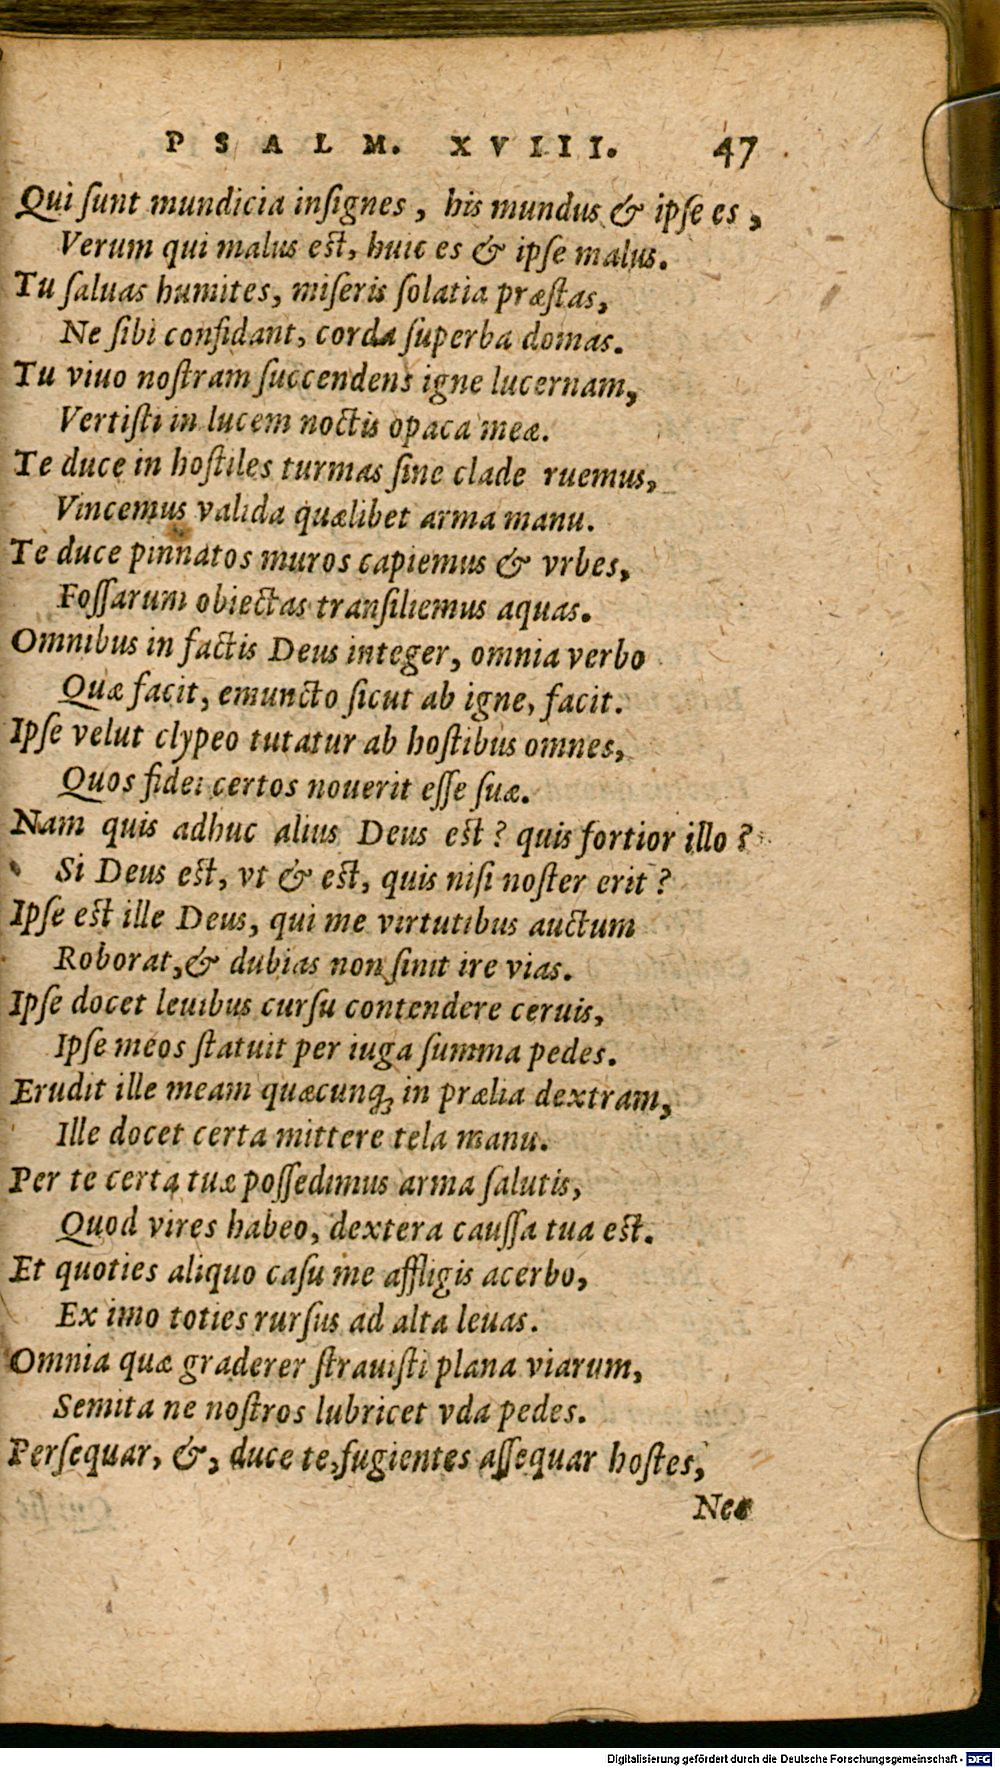 PSALM. XVIII. 47
Qui ſunt mundicia inſignes, his mundus & ipſe es,
Verum qui malus est, huic es & ipſe malus.
Tu ſaluas humites, miſeris ſolatia præſtas,
Ne ſibi confidant, corda ſuperba domas.
Tu viuo noſtram ſuccendens igne lucernam,
Vertiſti in lucem noctis opaca meæ.
Te duce in hoſtiles turmas ſine clade ruemus,
Vincemus valida quælibet arma manu.
Te duce pinnatos muros capiemus & vrbes,
Foſſarum obiectas tranſiliemus aquas.
Omnibus in factis Deus integer, omnia verbo
Quæ facit, emuncto ſicut ab igne, facit.
Ipſe velut clypeo tutatur ab hoſtibus omnes,
Quos fidei certos nouerit eſſe ſuæ.
Nam quis adhuc alius Deus est? quis fortior illo?
Si Deus est, vt & est, quis niſi noſter erit?
Ipſe est ille Deus, qui me virtutibus auctum
Roborat, & dubias non ſinit ire vias.
Ipſe docet leuibus curſu contendere ceruis,
Ipſe meos ſtatuit per iuga ſumma pedes.
Erudit ille meam quæcunq; in prælia dextram,
Ille docet certa mittere tela manu.
Per te certa tuæ poſſedimus arma ſalutis,
Quod vires habeo, dextera cauſſa tua est.
Et quoties aliquo caſu me affligis acerbo,
Ex imo toties rurſus ad alta leuas.
Omnia quæ graderer ſtrauiſti plana viarum,
Semita ne noſtros lubricet vda pedes.
Perſequar, &, duce te, fugientes aſſequar hoſtes,
Nec
Digitalisierung gefördert durch die Deutsche Forschungsgemeinschaft - DFG